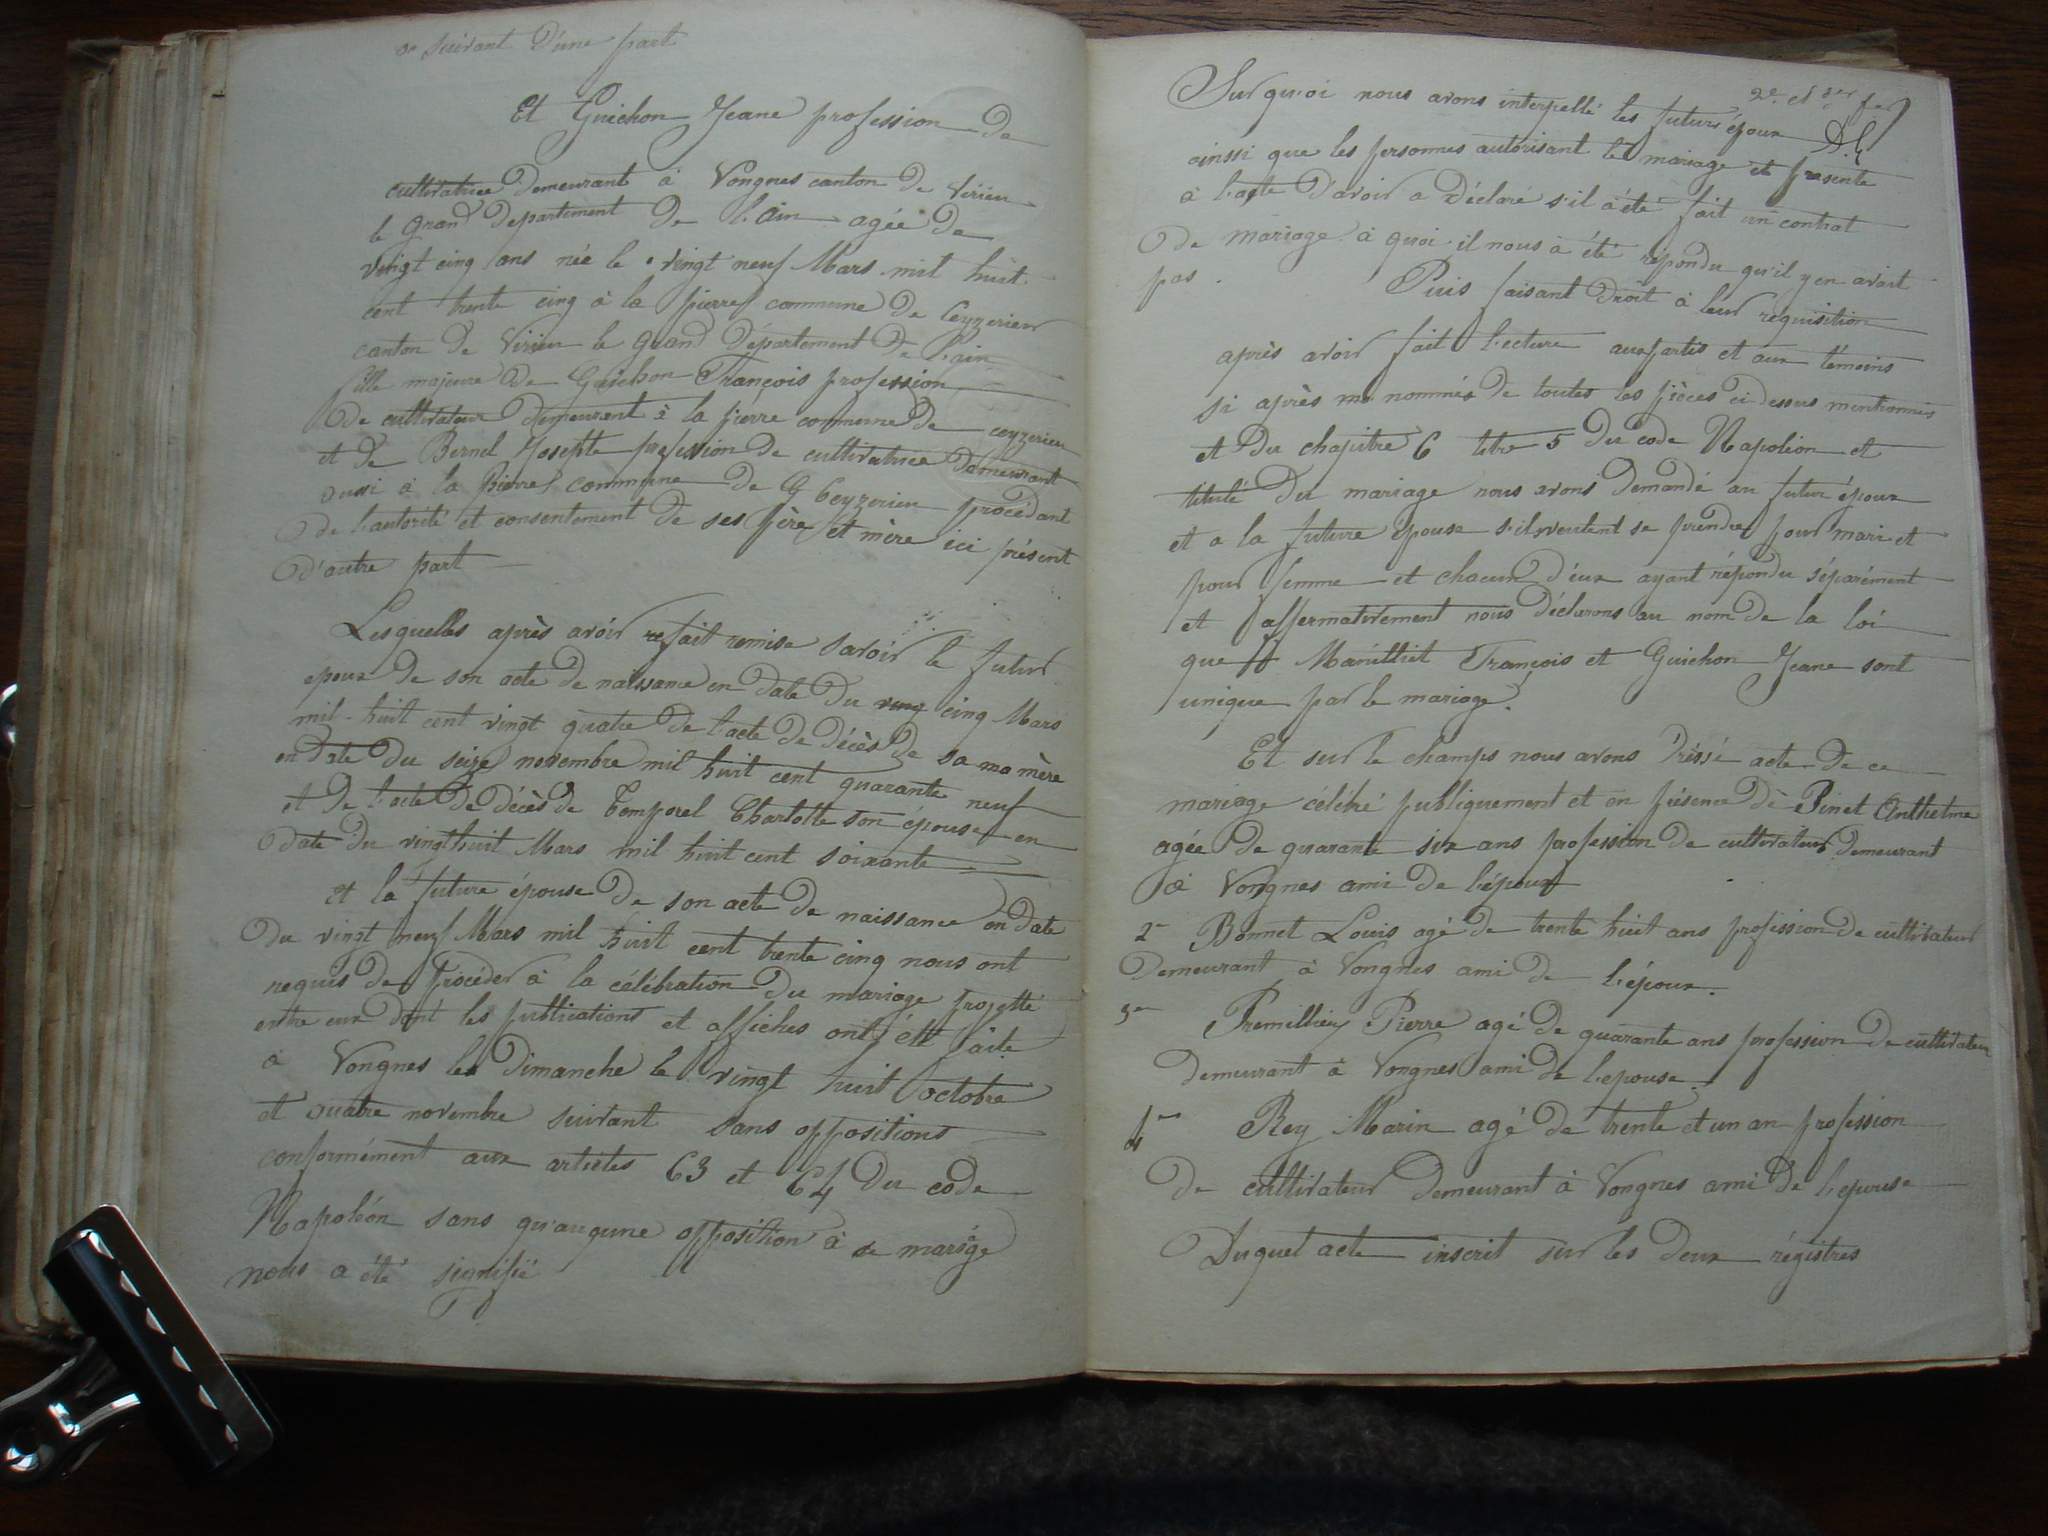 suivant d'une part
Et Guichon Jeane profession de
cultivatrice demeurant à Vongnes canton de Virieu
le grand departement de l'ain agée de
vingt cinq ans née le vingt neuf Mars mil huit
cent trente cinq à la pierre commune de Ceyzerieu
canton de Virieu le Grand département de l'ain
fille majeure de Guichon François profession
de cultivateur demeurant à la pierre commune de ceyzerieu
et de Bernel Josephte profession de cultivatrice demeurant
aussi à la Pierre commune de G Ceyzerieu procédant
de l'autorité et consentement de ses père et mère ici présent
d'autre part
Lesquelles après avoir refait remise savoir le futur
epoux de son acte de naissance en date du ving cinq Mars
mil-huit cent vingt quatre de l'acte de décès de sa ma mère
en date du seize novembre mil huit cent quarante neuf
et de l'acte de décès de Temporel Charlotte son épouse en
date du vingthuit Mars mil huit cent soixante
et la future épouse de son acte de naissance en date
du vingt neuf Mars mil huit cent trente cinq nous ont
requis de procéder à la célébration du mariage projetté
entre eux dont les publications et affiches ont été faite
à Vongnes les Dimanche le vingt huit octobre
et quatre novembre suivant sans oppositions
conformément aux articles 63 et 64 du code
Napoléon sans qu'augune opposition à ce mariage
nous a été signifié
2e et der fer
Sur quoi nous avons interpellé les futurs époux
ainssi que les personnes autorisant le mariage et presente
à l'acte d'avoir a déclaré s'il a été fait un contrat
de mariage à quoi il nous à été répondu qu'il y en avait
pas.
Puis faisant droit à leur requisition
après avoir fait lecture aux partis et aux témoins
si après me nommés de toutes les pièces ci dessus mentionnés
et du chapitre 6 titre 5 du code Napoléon et
titulé du mariage nous avons demandé au futur époux
et a la future épouse s'ils veulent se prendre pour mari et
pour femme et chacun d'eux ayant répondu séparément
et affermativement nous déclarons au nom de la loi
que Manilliet François et Guichon Jeane sont
unique par le mariage.
Et sur le champs nous avons dréssé acte de ce
mariage célébré publiquement et en présence dè Pinet Anthelme
agée de quarante six ans profession de cultivateur demeurant
à Vongnes ami de l'époux
2e Bonnet Louis agé de trente huit ans profession de cultivateur
demeurant à Vongnes ami de l'époux.
3e Premillieu Pierre agé de quarante ans profession de cultivateur
demeurant à Vongnes ami de l'epouse.
4e Rey Marin agé de trente et un an profession
de cultivateur demeurant à Vongnes ami de l'epouse
Duquel acte inscrit sur les deux régistres